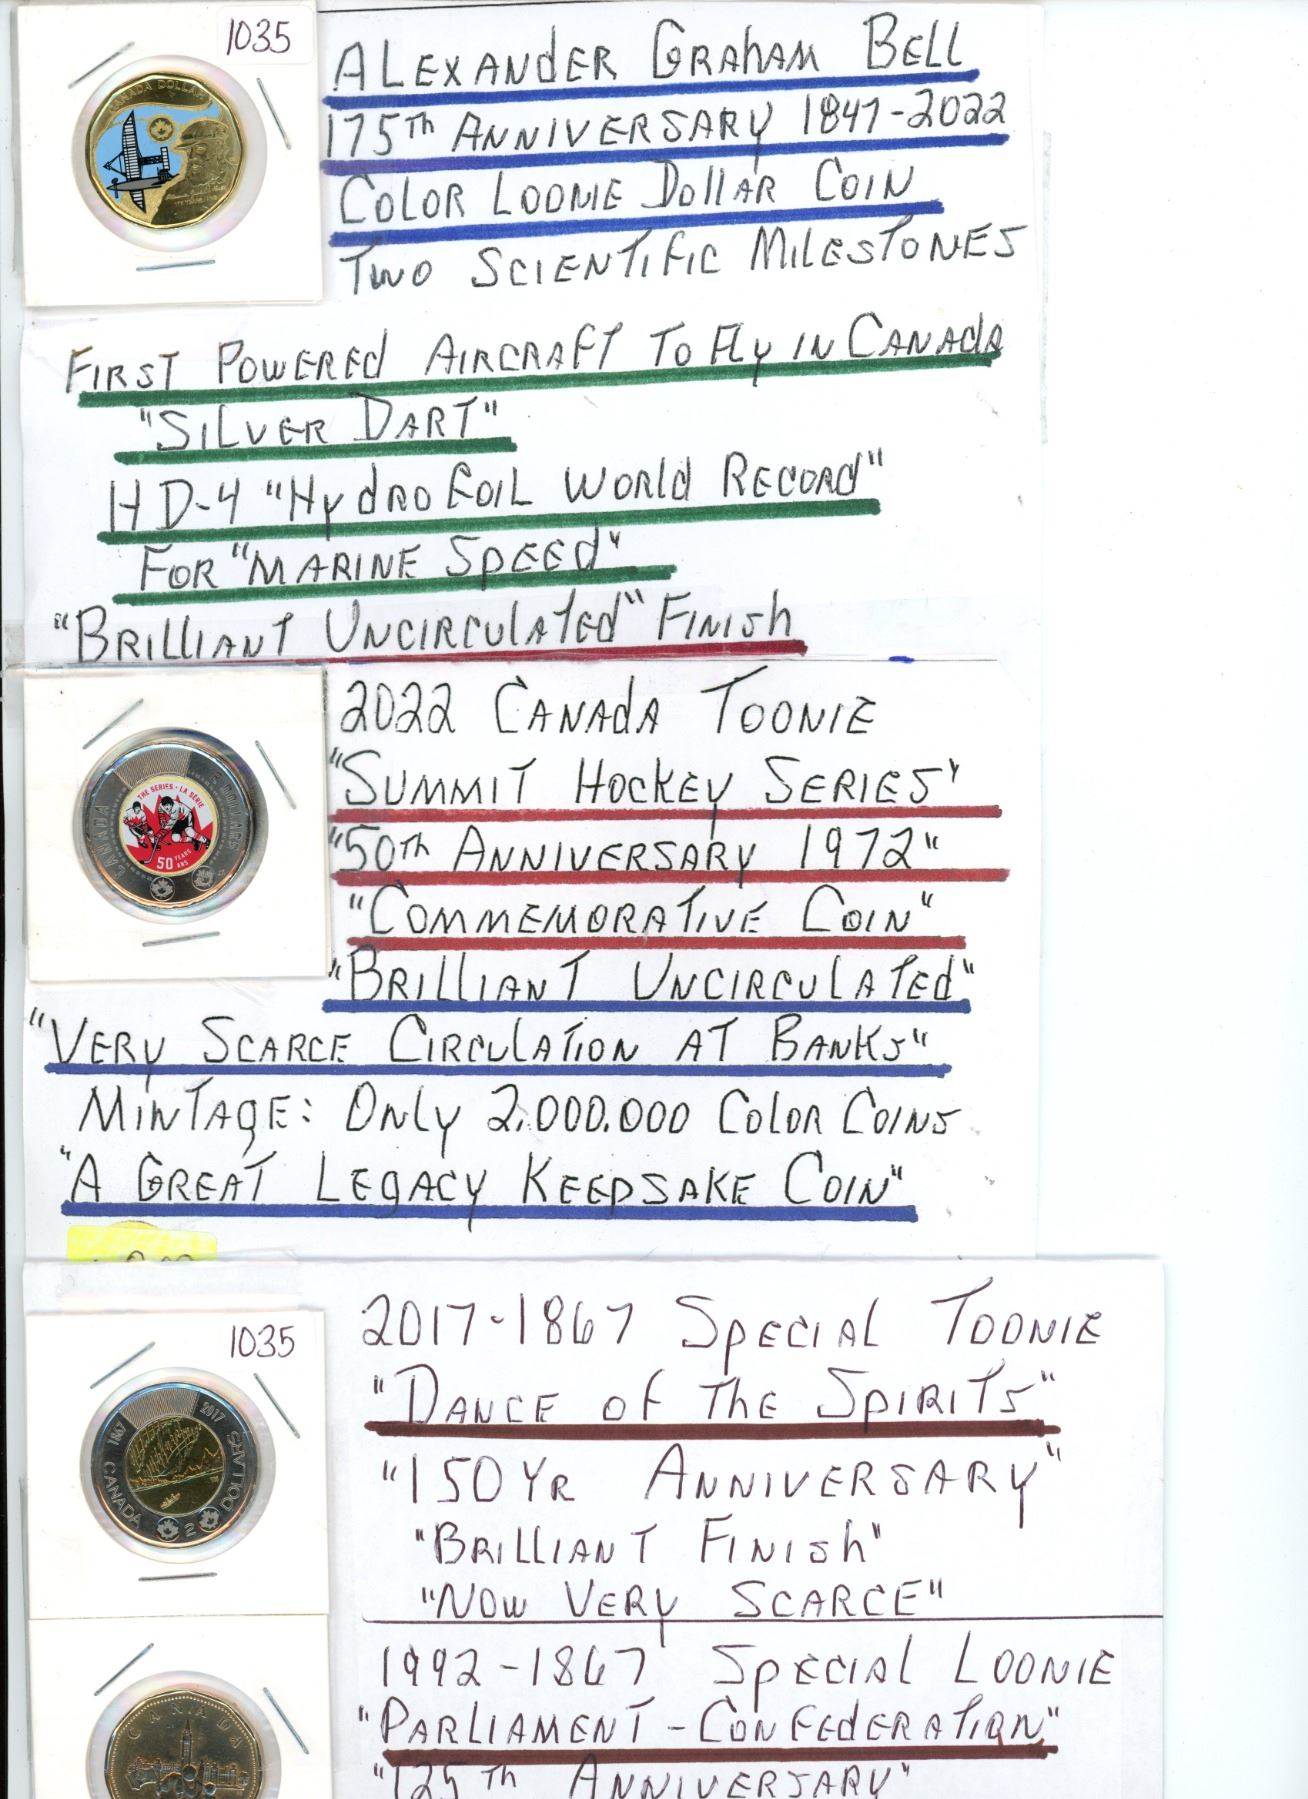 1035
ALEXANDER GRAHAM BELL
175TH ANNIVERSARY 1847-2022
COLOR LOONIE DOLLAR COIN
TWO SCIENTIFIC MILESTONES
CANADA DOLLAR
FIRST POWERED AIRCRAFT TO FLY IN CANADA
"SILVER DART"
HD-4 "HYDROFOIL WORLD RECORD"
FOR "MARINE SPEED"
"BRILLIANT UNCIRCULATED" FINISH
2022 CANADA TOONIE
"SUMMIT HOCKEY SERIES"
"50TH ANNIVERSARY 1972"
"COMMEMORATIVE COIN"
"BRILLIANT UNCIRCULATED"
CANADA 2 DOLLARS
THE SERIES • LA SÉRIE
50 YEARS ANS
"VERY SCARCE CIRCULATION AT BANKS"
MINTAGE: ONLY 2,000.000 COLOR COINS
"A GREAT LEGACY KEEPSAKE COIN"
1035
2017-1867 SPECIAL TOONIE
"DANCE OF THE SPIRITS"
"150 YR ANNIVERSARY"
"BRILLIANT FINISH"
"NOW VERY SCARCE"
1867 2017
CANADA 2 DOLLARS
1992-1867 SPECIAL LOONIE
"PARLIAMENT-CONFEDERATION"
"125TH ANNIVERSARY"
CANADA